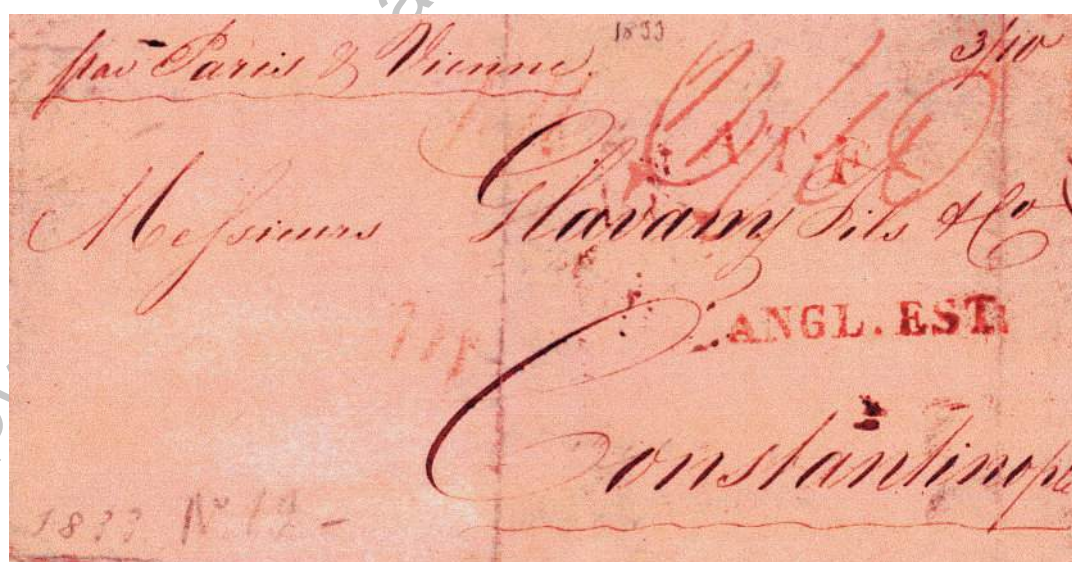 1833
par Paris & Vienne
3/10
A.T.F.
Messieurs Glavany Fils & Co
ANGL. EST.
Constantinople
1833 No 12 -